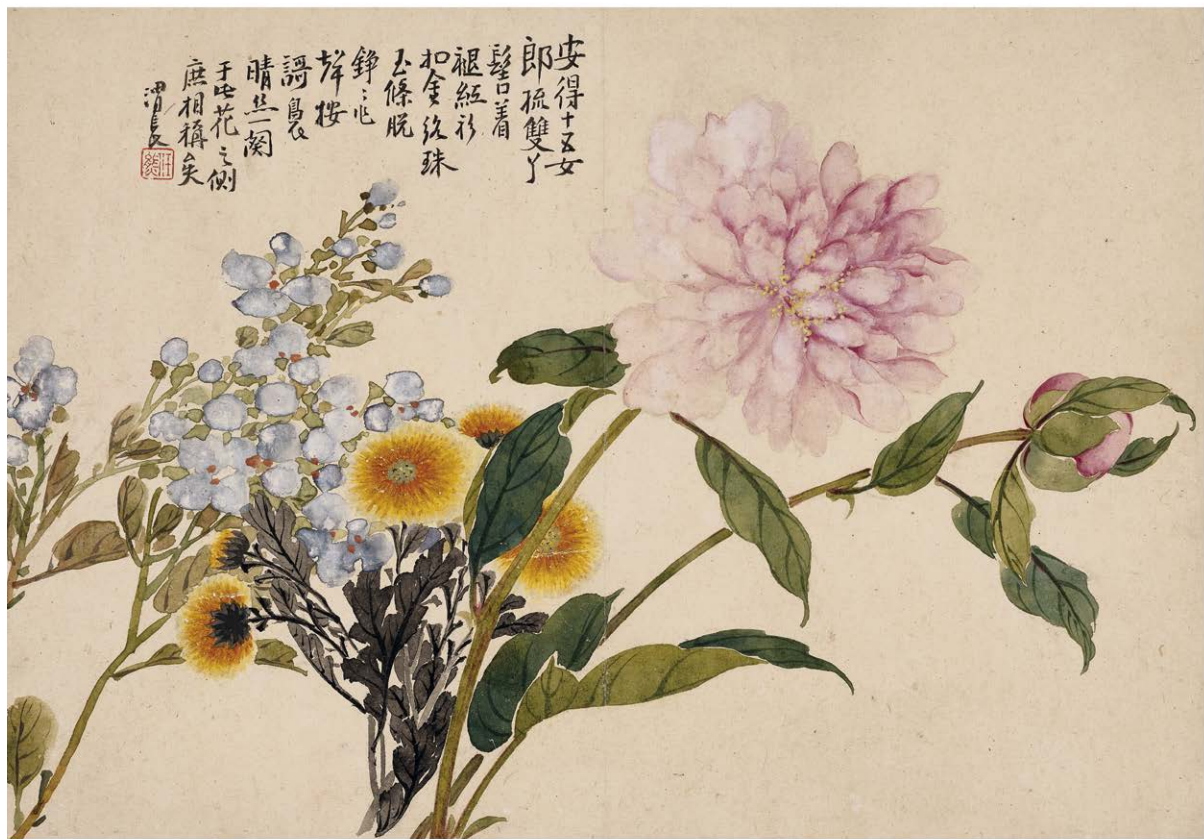 安得十五女
郎梳雙丫
髻着
褪紅衫
扣金絡珠
玉條脱
錚〻作
聲按
謌裊
晴絲一闋
于此花之側
庶相稱矣
渭長